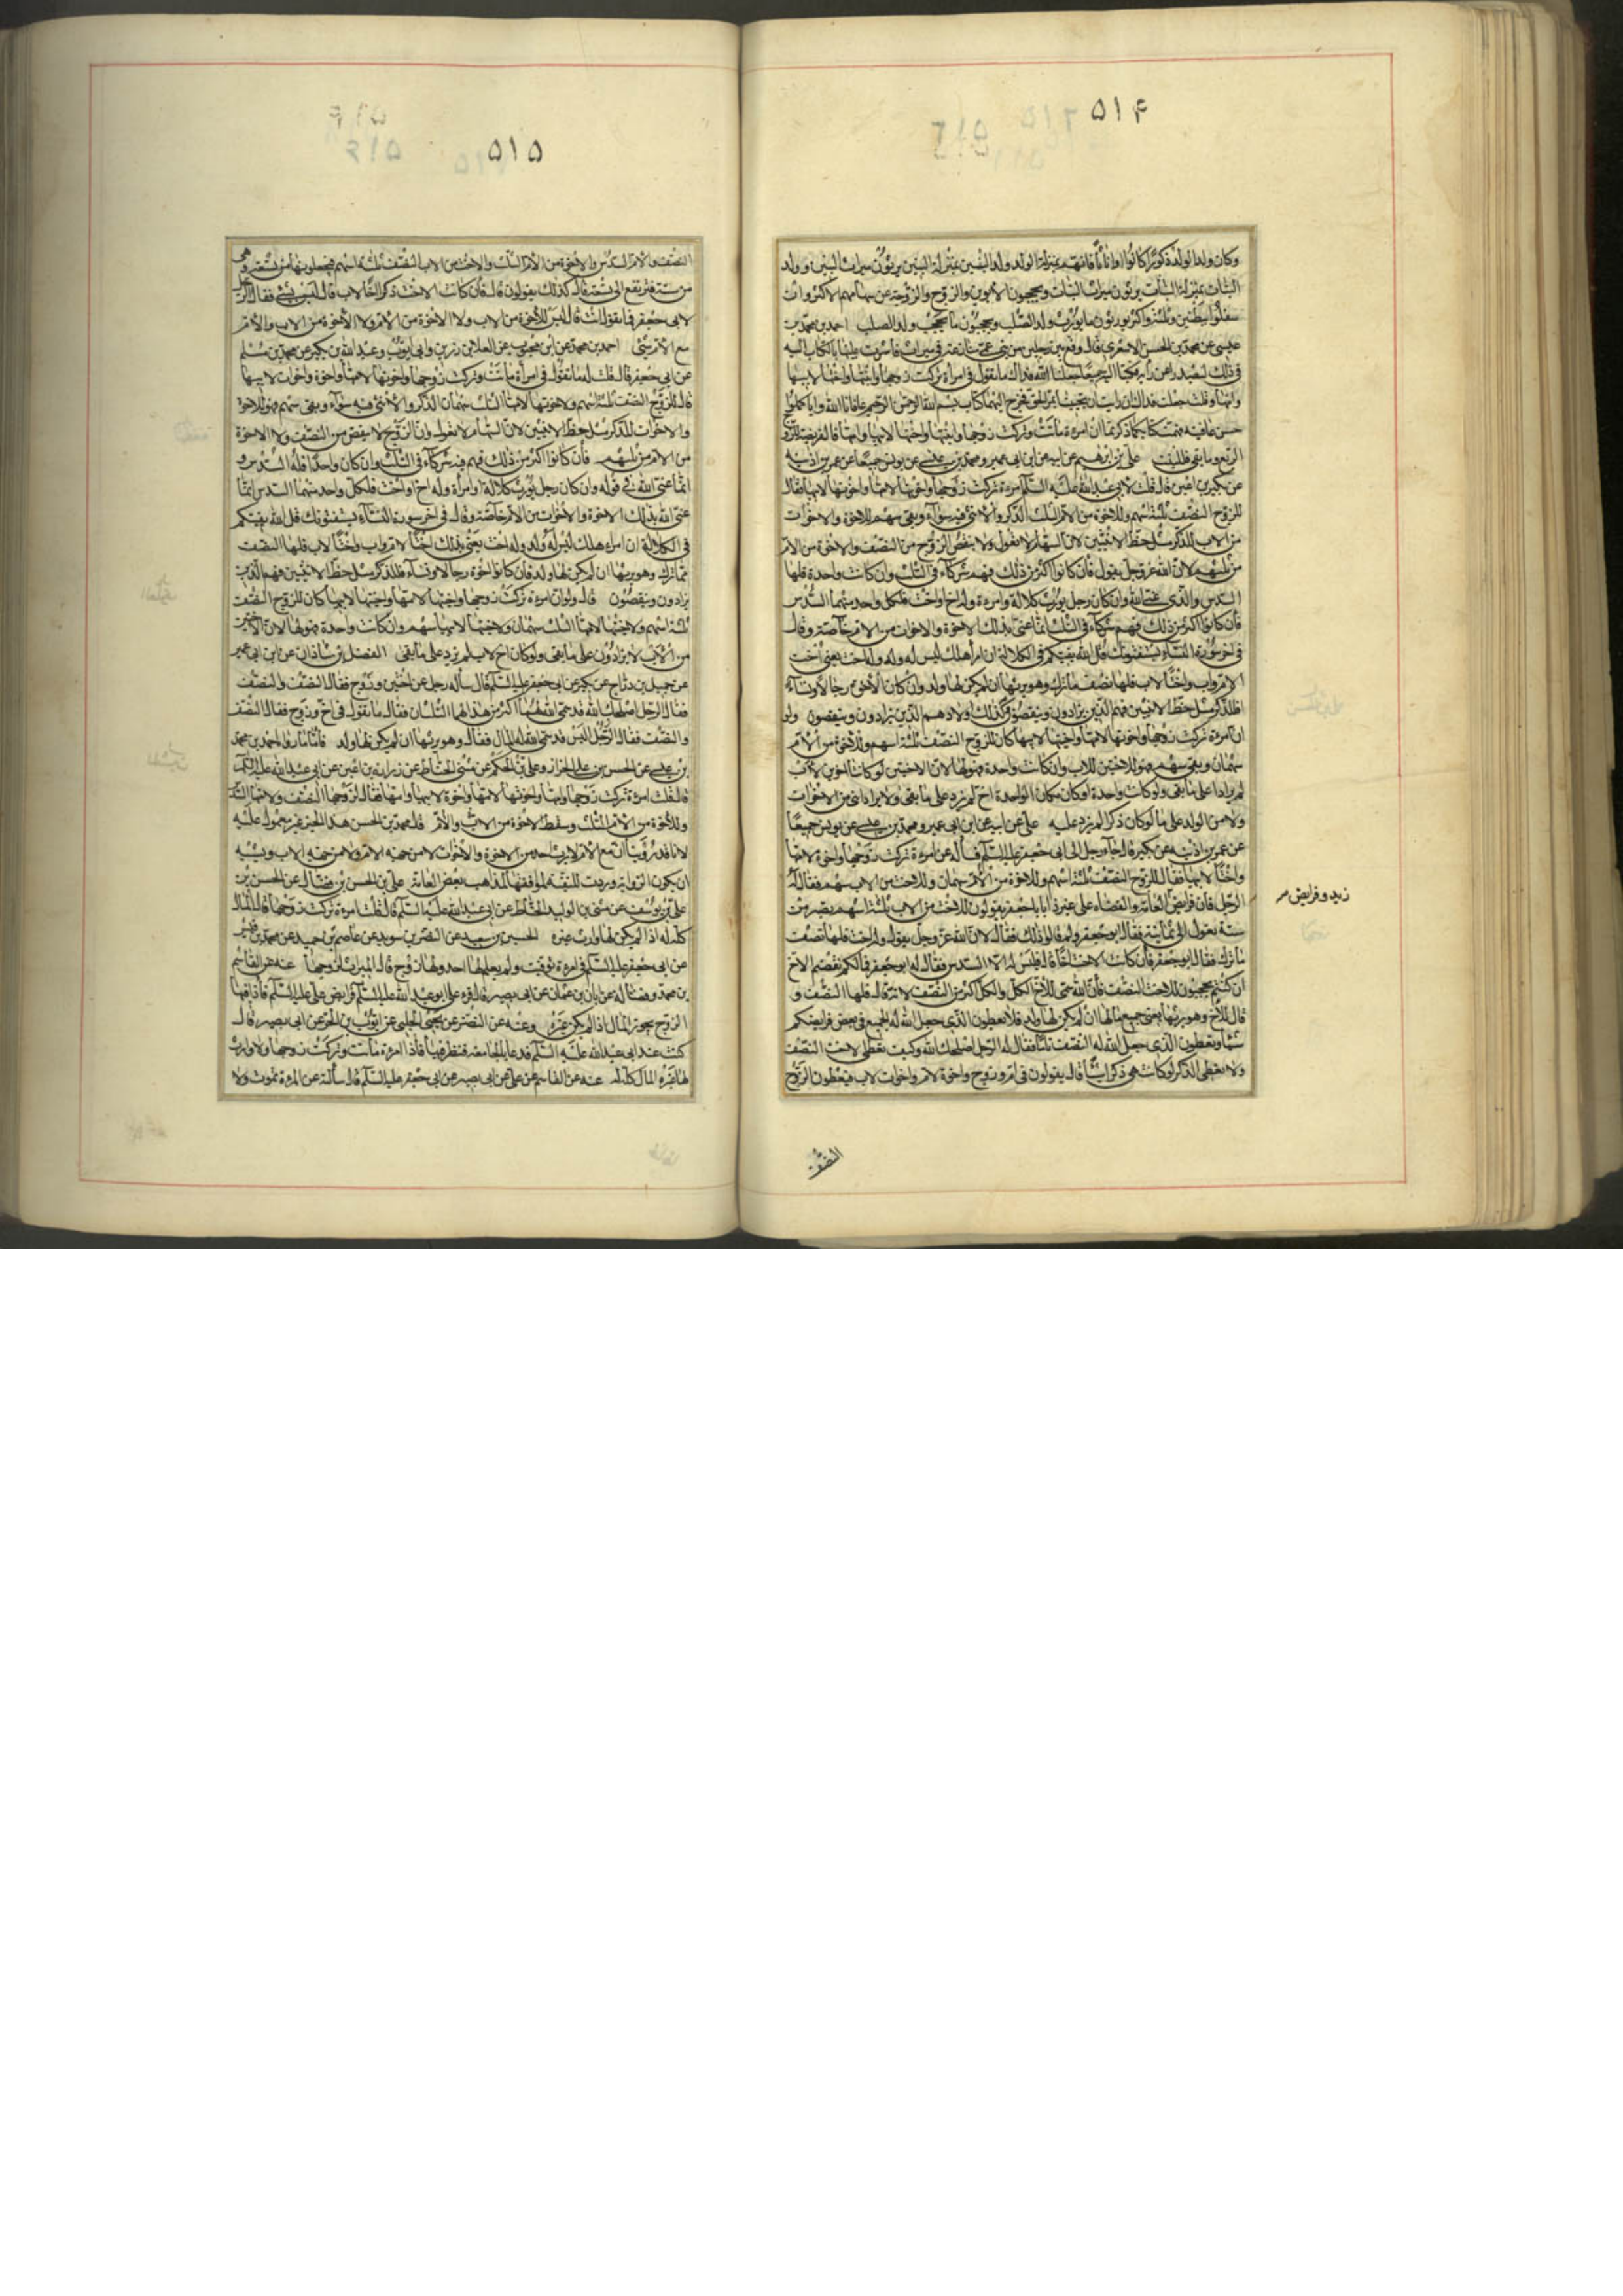 ۵۱۴
وكان ولد الولد ذكورًا كانوا او اناثًا فانهم بمنزلة الولد وولد البنين بمنزلة البنين يرثون ميراث البنين وولد
البنات بمنزلة البنات يرثون ميراث البنات ويحجبون الابوين والزوج والزوجة عن سهامهم الاكثر وان
سفلوا ببطنين وثلثة واكثر يورثون ما يورث ولد الصلب ويحجبون ما يحجب ولد الصلب احمد بن محمد بن
عيسى عن محمد بن الحسن الاشعرى قال وقع بين رجلين من بنى عمى منازعة فى ميراث فاشرت عليهما بالكتاب اليه
فى ذلك ليصدرا عن رأيه فكتبا اليه جميعًا جعلنا الله فداك ما تقول فى امرأة تركت زوجها وابنتها واختها لابيها
وامها وقلت جعلت فداك ان رايت ان تجيبنا بمر الحق فخرج اليهما كتاب بسم الله الرحمن الرحيم عافانا الله واياكما
حسن عافيته فهمت كتابكما ذكرتما ان امرءة ماتت وتركت زوجها وابنتها واختها لابيها وامها فالفريضة للزوج
الربع وما بقى فللبنت على بن ابرهيم عن ابيه عن ابن ابى عمير ومحمد بن عيسى عن يونس جميعًا عن عمر بن اذينه
عن بكير بن اعين قال قلت لابى عبد الله عليه السلم امرءة تركت زوجها واخوتها لامها واخوتها لابيها فقال
للزوج النصف ثلثة اسهم وللاخوة من الام الثلث الذكر والانثى فيه سواء وبقى سهم للاخوة والاخوات
من الاب للذكر مثل حظ الانثيين لان السهام لا تعول ولا ينقص الزوج من النصف والاخوة من الام
من ثلثهم لان الله عز وجل يقول فان كانوا اكثر من ذلك فهم شركاء فى الثلث وان كانت واحدة فلها
السدس والذى عنى الله وان كان رجل يورث كلالة وامرءة وله اخ او اخت فلكل واحد منهما السدس
فان كانوا اكثر من ذلك فهم شركاء فى الثلث انما عنى بذلك الاخوة والاخوات من الام خاصة وقال
فى اخر سورة النساء يستفتونك قل الله يفتيكم فى الكلالة ان امرأ هلك ليس له ولد وله اخت يعنى اخت
لام واب واختًا لاب فلها نصف ما ترك وهو يرثها ان لم يكن لها ولد وان كان الاخوة رجالا ونساء
فللذكر مثل حظ الانثيين فهم الذين يزادون وينقصون وكذلك اولادهم الذين يزادون وينقصون ولو
ان امرءة تركت زوجها واخوتها لامها واختيها لابيها كان للزوج النصف ثلثة اسهم وللاخوة من الام
سهمان وبقى سهم فهو للاختين للاب وان كانت واحدة فهو لها لان الاختين لو كانتا اخوين لاب
لم يزادا على ما بقى ولو كانت واحدة او كان مكان الواحدة اخ لم يزد على ما بقى ولا يزاد انثى من الاخوات
ولا من الولد على ما لو كان ذكرا لم يزد عليه على عن ابيه عن ابن ابى عمير ومحمد بن عيسى عن يونس جميعًا
عن عمر بن اذينه عن بكير قال جاء رجل الى ابى جعفر عليه السلم فسأله عن امرءة تركت زوجها واخوة لامها
واختًا لابيها فقال للزوج النصف ثلثة اسهم وللاخوة من الام سهمان وللاخت من الاب سهم فقال له
الرجل فان فرايض العامة والقضاة على غير ذا يا ابا جعفر يقولون للاخت من الاب ثلثة اسهم يصير من
ستة يعول الى ثمانية فقال ابو جعفر ولم قالوا ذلك فقال لان الله عز وجل يقول وله اخت فلها نصف
ما ترك فقال ابو جعفر فان كانت الاخت اخًا قال فليس له الا السدس فقال له ابو جعفر فما لكم نقصتم الاخ
ان كنتم تحتجون للاخت النصف فان الله سمى للاخ الكل والكل اكثر من النصف لانه قال فلها النصف و
قال للاخ وهو يرثها يعنى جميع مالها ان لم يكن لها ولد فلا تعطون الذى جعل الله له الجميع فى بعض فرايضكم
شيئًا وتعطون الذى جعل الله له النصف تامًا فقال له الرجل اصلحك الله وكيف نعطى لاخت النصف
ولا نعطى الذكر لو كانت هى ذكرا شيئًا قال يقولون فى ام وزوج واخوة لام واخوات لاب فيعطون الزوج
زيد وفرايض
النصف
۵۱۵
النصف والام السدس والاخوة من الام الثلث والاخت من الاب النصف ثلثة اسهم فيجعلونها من تسعة وهى
من ستة فترتفع الى تسعة قال كذلك يقولون قال فان كانت الاخت ذكرا اخًا لاب قال ليس له شئ فقال الرجل
لابى جعفر فما تقول انت قال ليس للاخوة من الاب ولا الاخوة من الام ولا الاخوة من الاب والام
مع الام شئ احمد بن محمد عن ابن محبوب عن العلا بن رزين وابى ايوب وعبد الله بن بكير عن محمد بن مسلم
عن ابى جعفر قال قلت له ما تقول فى امرأة ماتت وتركت زوجها واخوتها لامها واخوة واخوات لابيها
قال للزوج النصف ثلثة اسهم ولاخوتها لامها الثلث سهمان الذكر والانثى فيه سواء وبقى سهم فهو للاخوة
والاخوات للذكر مثل حظ الانثيين لان السهام لا تعول وان الزوج لا ينقص من النصف ولا الاخوة
من الام من ثلثهم فان كانوا اكثر من ذلك فهم فيه شركاء فى الثلث وان كان واحدًا فله السدس و
انما عنى الله فى قوله وان كان رجل يورث كلالة او امرأة وله اخ او اخت فلكل واحد منهما السدس انما
عنى الله بذلك الاخوة والاخوات من الام خاصة وقال فى اخر سورة النساء يستفتونك قل الله يفتيكم
فى الكلالة ان امرء هلك ليس له ولد وله اخت يعنى بذلك اختًا لام واب واختًا لاب فلها النصف
مما ترك وهو يرثها ان لم يكن لها ولد فان كانوا اخوة رجالا ونساء فللذكر مثل حظ الانثيين فهم الذين
يزادون وينقصون قال ولو ان امرءة تركت زوجها واختيها لامها واختيها لابيها كان للزوج النصف
ثلثة اسهم ولاختيها لامها الثلث سهمان ولاختيها لابيها سهم وان كانت واحدة فهو لها لان الاختين
من الاب لا يزادون على ما بقى ولو كان اخ لاب لم يزد على ما بقى الفضل بن شاذان عن ابن ابى عمير
عن جميل بن دراج عن بكير عن ابى جعفر عليه السلم قال سأله رجل عن اختين وزوج فقال النصف والنصف
فقال الرجل اصلحك الله قد سمى الله لهما اكثر من هذا لهما الثلثان فقال ما تقول فى اخ وزوج فقال النصف
والنصف فقال الرجل اليس قد سمى الله له المال فقال وهو يرثها ان لم يكن لها ولد فاما ما رواه احمد بن محمد
بن عيسى عن الحسن بن على الخزاز وعلى بن الحكم عن مثنى الحناط عن زرارة بن اعين عن ابى عبد الله عليه السلم
قال قلت امرءة تركت زوجها وامها واخوتها لامها واخوة لابيها وامها فقال لزوجها النصف ولامها السدس
وللاخوة من الام الثلث وسقط الاخوة من الاب والام قال محمد بن الحسن هذا الخبر غير معمول عليه
لانا قد روينا ان مع الام لا يرث احد من الاخوة والاخوات لا من جهة الام ولا من جهة الاب ويشبه
ان يكون الرواية وردت للتقية لموافقتها لمذاهب بعض العامة على بن الحسن بن فضال عن الحسن بن
على بن يوسف عن مثنى بن الوليد الحناط عن ابى عبد الله عليه السلم قال قلت امرءة تركت زوجها قال المال
كله له اذا لم يكن لها وارث غيره الحسين بن سعيد عن النضر بن سويد عن عاصم بن حميد عن محمد بن قيس
عن ابى جعفر عليه السلم فى امرءة توفيت ولم يعلم لها احد ولها زوج قال الميراث لزوجها عنه عن القاسم
بن محمد وفضالة عن ابان بن عثمان عن ابى بصير قال قرء على ابو عبد الله عليه السلم فرايض على عليه السلم فاذا فيها
الزوج يحوز المال اذا لم يكن غيره وعنه عن النضر عن يحيى الحلبى عن ايوب بن الحر عن ابى بصير قال
كنت عند ابى عبد الله عليه السلم فدعا بالجامعة فنظر فيها فاذا امرءة ماتت وتركت زوجها ولا وارث
لها غيره المال كله له عنه عن القاسم عن على عن ابى بصير عن ابى جعفر عليه السلم قال سألته عن المرءة تموت ولا